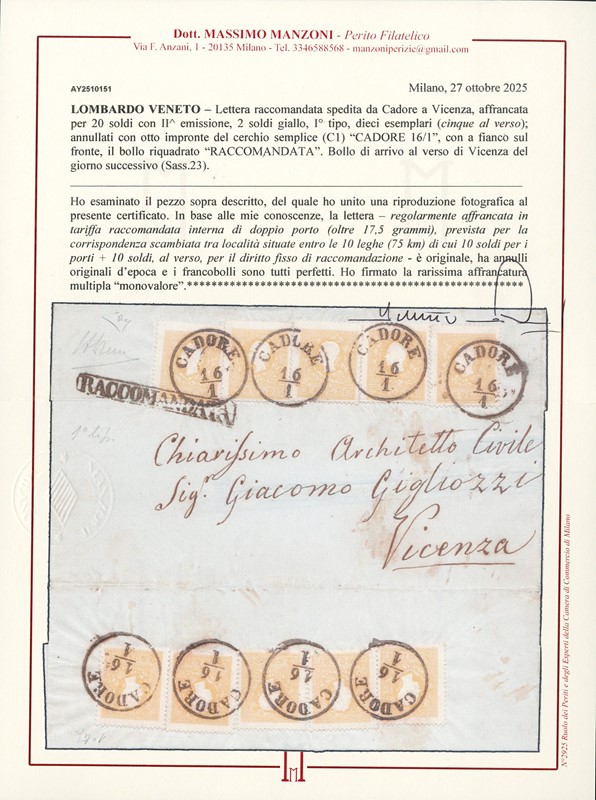 Dott. MASSIMO MANZONI - Perito Filatelico
Via F. Anzani, 1 - 20135 Milano - Tel. 3346588568 - manzoniperizie@gmail.com
AY2510151
Milano, 27 ottobre 2025
LOMBARDO VENETO – Lettera raccomandata spedita da Cadore a Vicenza, affrancata
per 20 soldi con II^ emissione, 2 soldi giallo, I° tipo, dieci esemplari (cinque al verso);
annullati con otto impronte del cerchio semplice (C1) “CADORE 16/1”, con a fianco sul
fronte, il bollo riquadrato “RACCOMANDATA”. Bollo di arrivo al verso di Vicenza del
giorno successivo (Sass.23).
Ho esaminato il pezzo sopra descritto, del quale ho unito una riproduzione fotografica al
presente certificato. In base alle mie conoscenze, la lettera – regolarmente affrancata in
tariffa raccomandata interna di doppio porto (oltre 17,5 grammi), prevista per la
corrispondenza scambiata tra località situate entro le 10 leghe (75 km) di cui 10 soldi per i
porti + 10 soldi, al verso, per il diritto fisso di raccomandazione - è originale, ha annulli
originali d’epoca e i francobolli sono tutti perfetti. Ho firmato la rarissima affrancatura
multipla “monovalore”.********************************************
CADORE
16
1
CADORE
16
1
CADORE
16
1
CADORE
16
1
RACCOMANDATA
1° tip.
Chiarissimo Architetto Civile
Sigr. Giacomo Gigliozzi
Vicenza
CADORE
16
1
CADORE
16
1
CADORE
16
1
CADORE
16
1
N°2925 Ruolo dei Periti e degli Esperti della Camera di Commercio di Milano
M